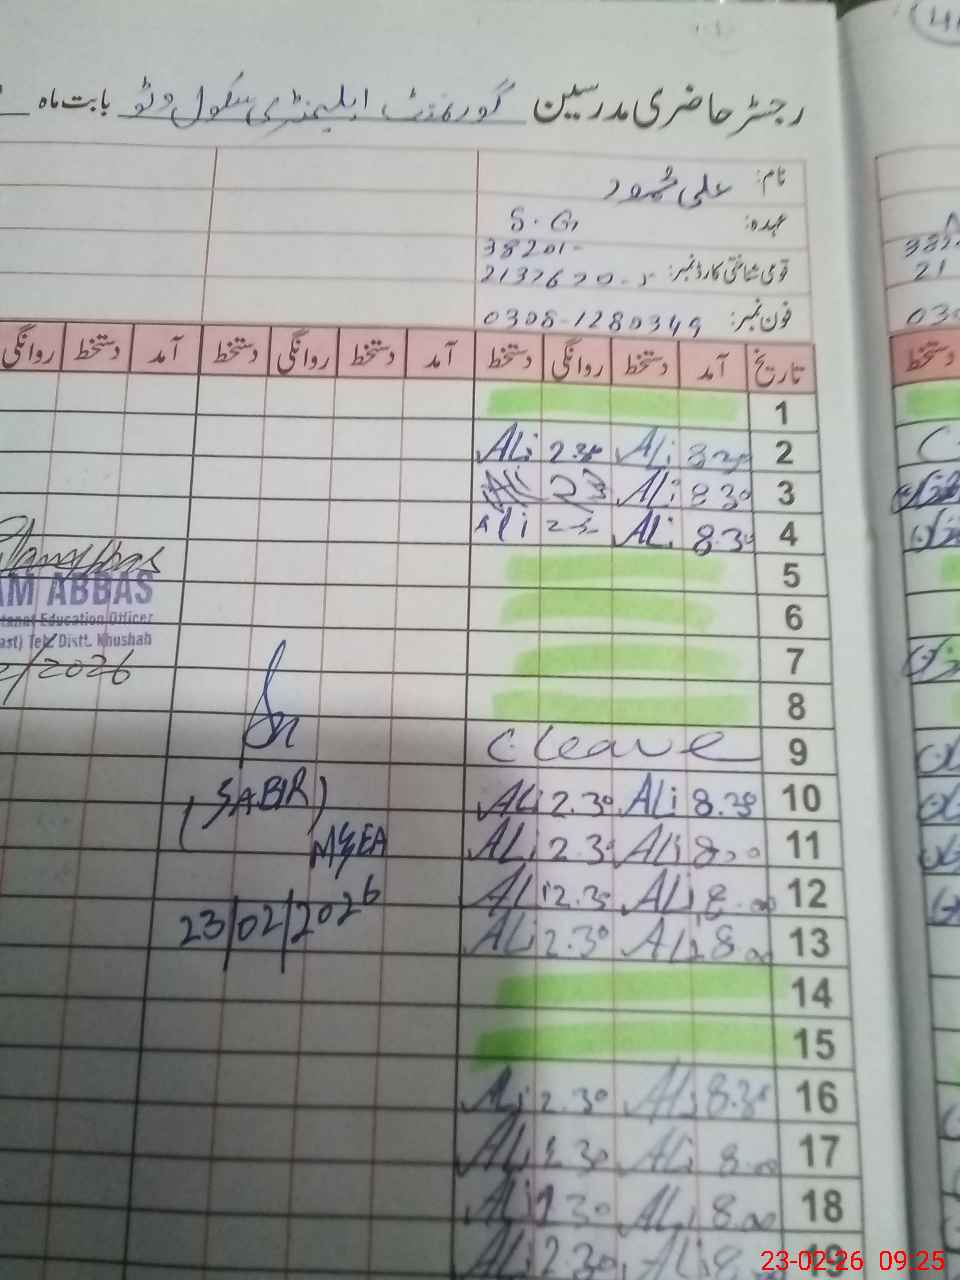 رجسٹر حاضری مدرسین گورنمنٹ ایلیمنٹری سکول وٹو بابت ماہ
نام: علی محمود
عہدہ: S.G,
قومی شناختی کارڈ نمبر: 38201-
فون نمبر: 0308-1280349
تاریخ آمد دستخط روانگی دستخط آمد دستخط روانگی دستخط آمد دستخط روانگی
دستخط
1
2 8.30 ALi 2.30 ALi
3 8.30 ALi ALi
4 8.30 ALi ALi
5
6
7
8
9 C leave
10 8.30 ALi 2.30 ALi
11 8.00 ALi 2.30 ALi
12 8.00 ALi 2.30 ALi
13 8.00 ALi 2.30 ALi
14
15
16 8.30 ALi 2.30 ALi
17 8.00 ALi 2.30 ALi
18 8.00 ALi 2.30 ALi
19 ALi 2.30 ALi
AM ABBAS
Education Officer
ast) Teh/ Distt. Khushab
2/2026
(SABIR)
M&EA
23/02/2026
23-02-26 09:25